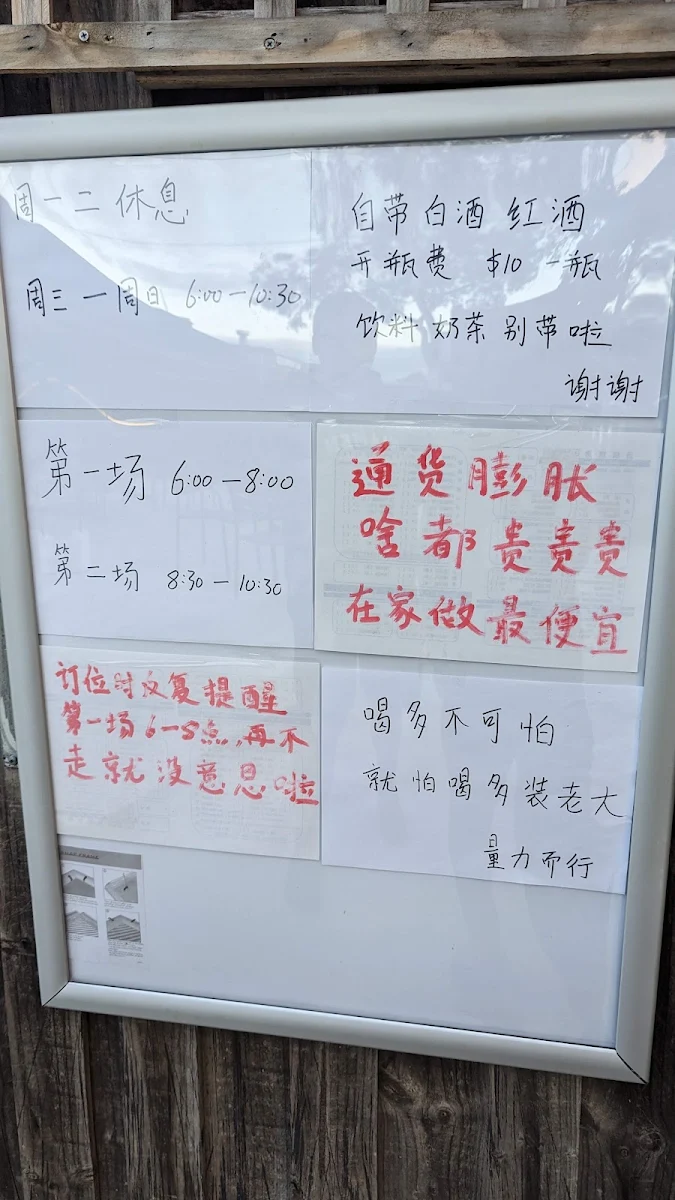 周一二休息
周三一周日 6:00-10:30
自带白酒 红酒
开瓶费 $10 一瓶
饮料 奶茶 别带啦
谢谢
第一场 6:00-8:00
第二场 8:30-10:30
通货膨胀
啥都贵贵贵
在家做最便宜
订位时反复提醒
第一场 6-8点,再不
走就没意思啦
喝多不可怕
就怕喝多装老大
量力而行